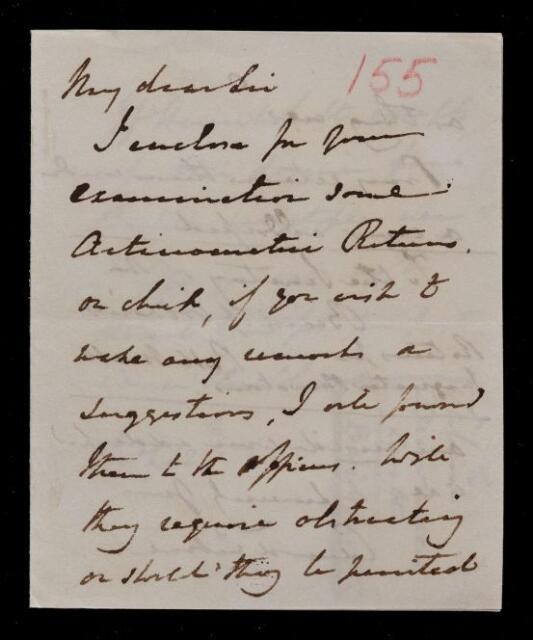 155
My dear Sir
I enclose for your
examination some
Actinometric Returns.
on which, if you wish to
make any remarks or
suggestions, I will forward
them to the Officers. Will
they require abstracting
or should they be printed